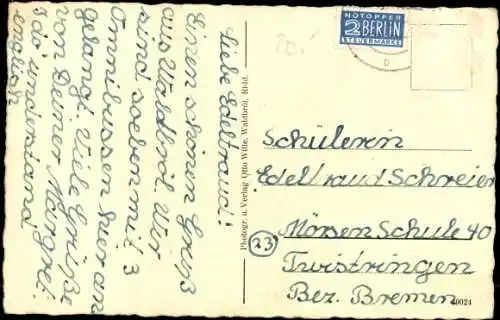 Liebe Edeltraud!
Einen schönen Gruß
aus Waldbröl. Wir
sind soeben mit 3
Omnibussen hier an
gelangt. Viele Grüße
von Deiner Margret.
I do understand
english
20,-
NOTOPFER
2 BERLIN
STEUERMARKE
b
Photogr. u. Verlag Otto Wille, Waldbröl, Rhld.
Schülerin
Edeltraud Schreier
Mörsen Schule 40
23 Twistringen
Bez. Bremen
40024